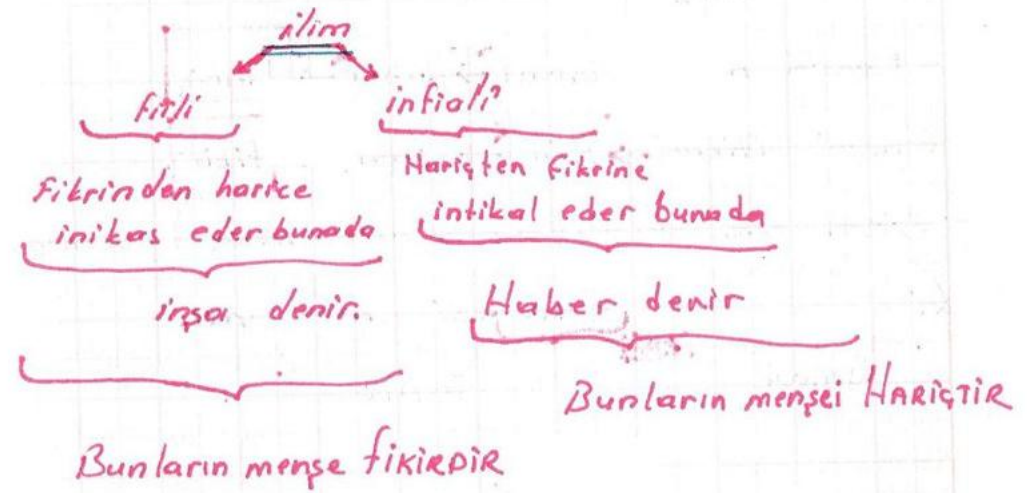 ilim
fiili
infiali
Fikrinden harice
inikas eder bunada
inşa denir.
Bunların menşe fikirdir
Hariçten fikrine
intikal eder bunada
Haber denir
Bunların menşei HARİÇTİR